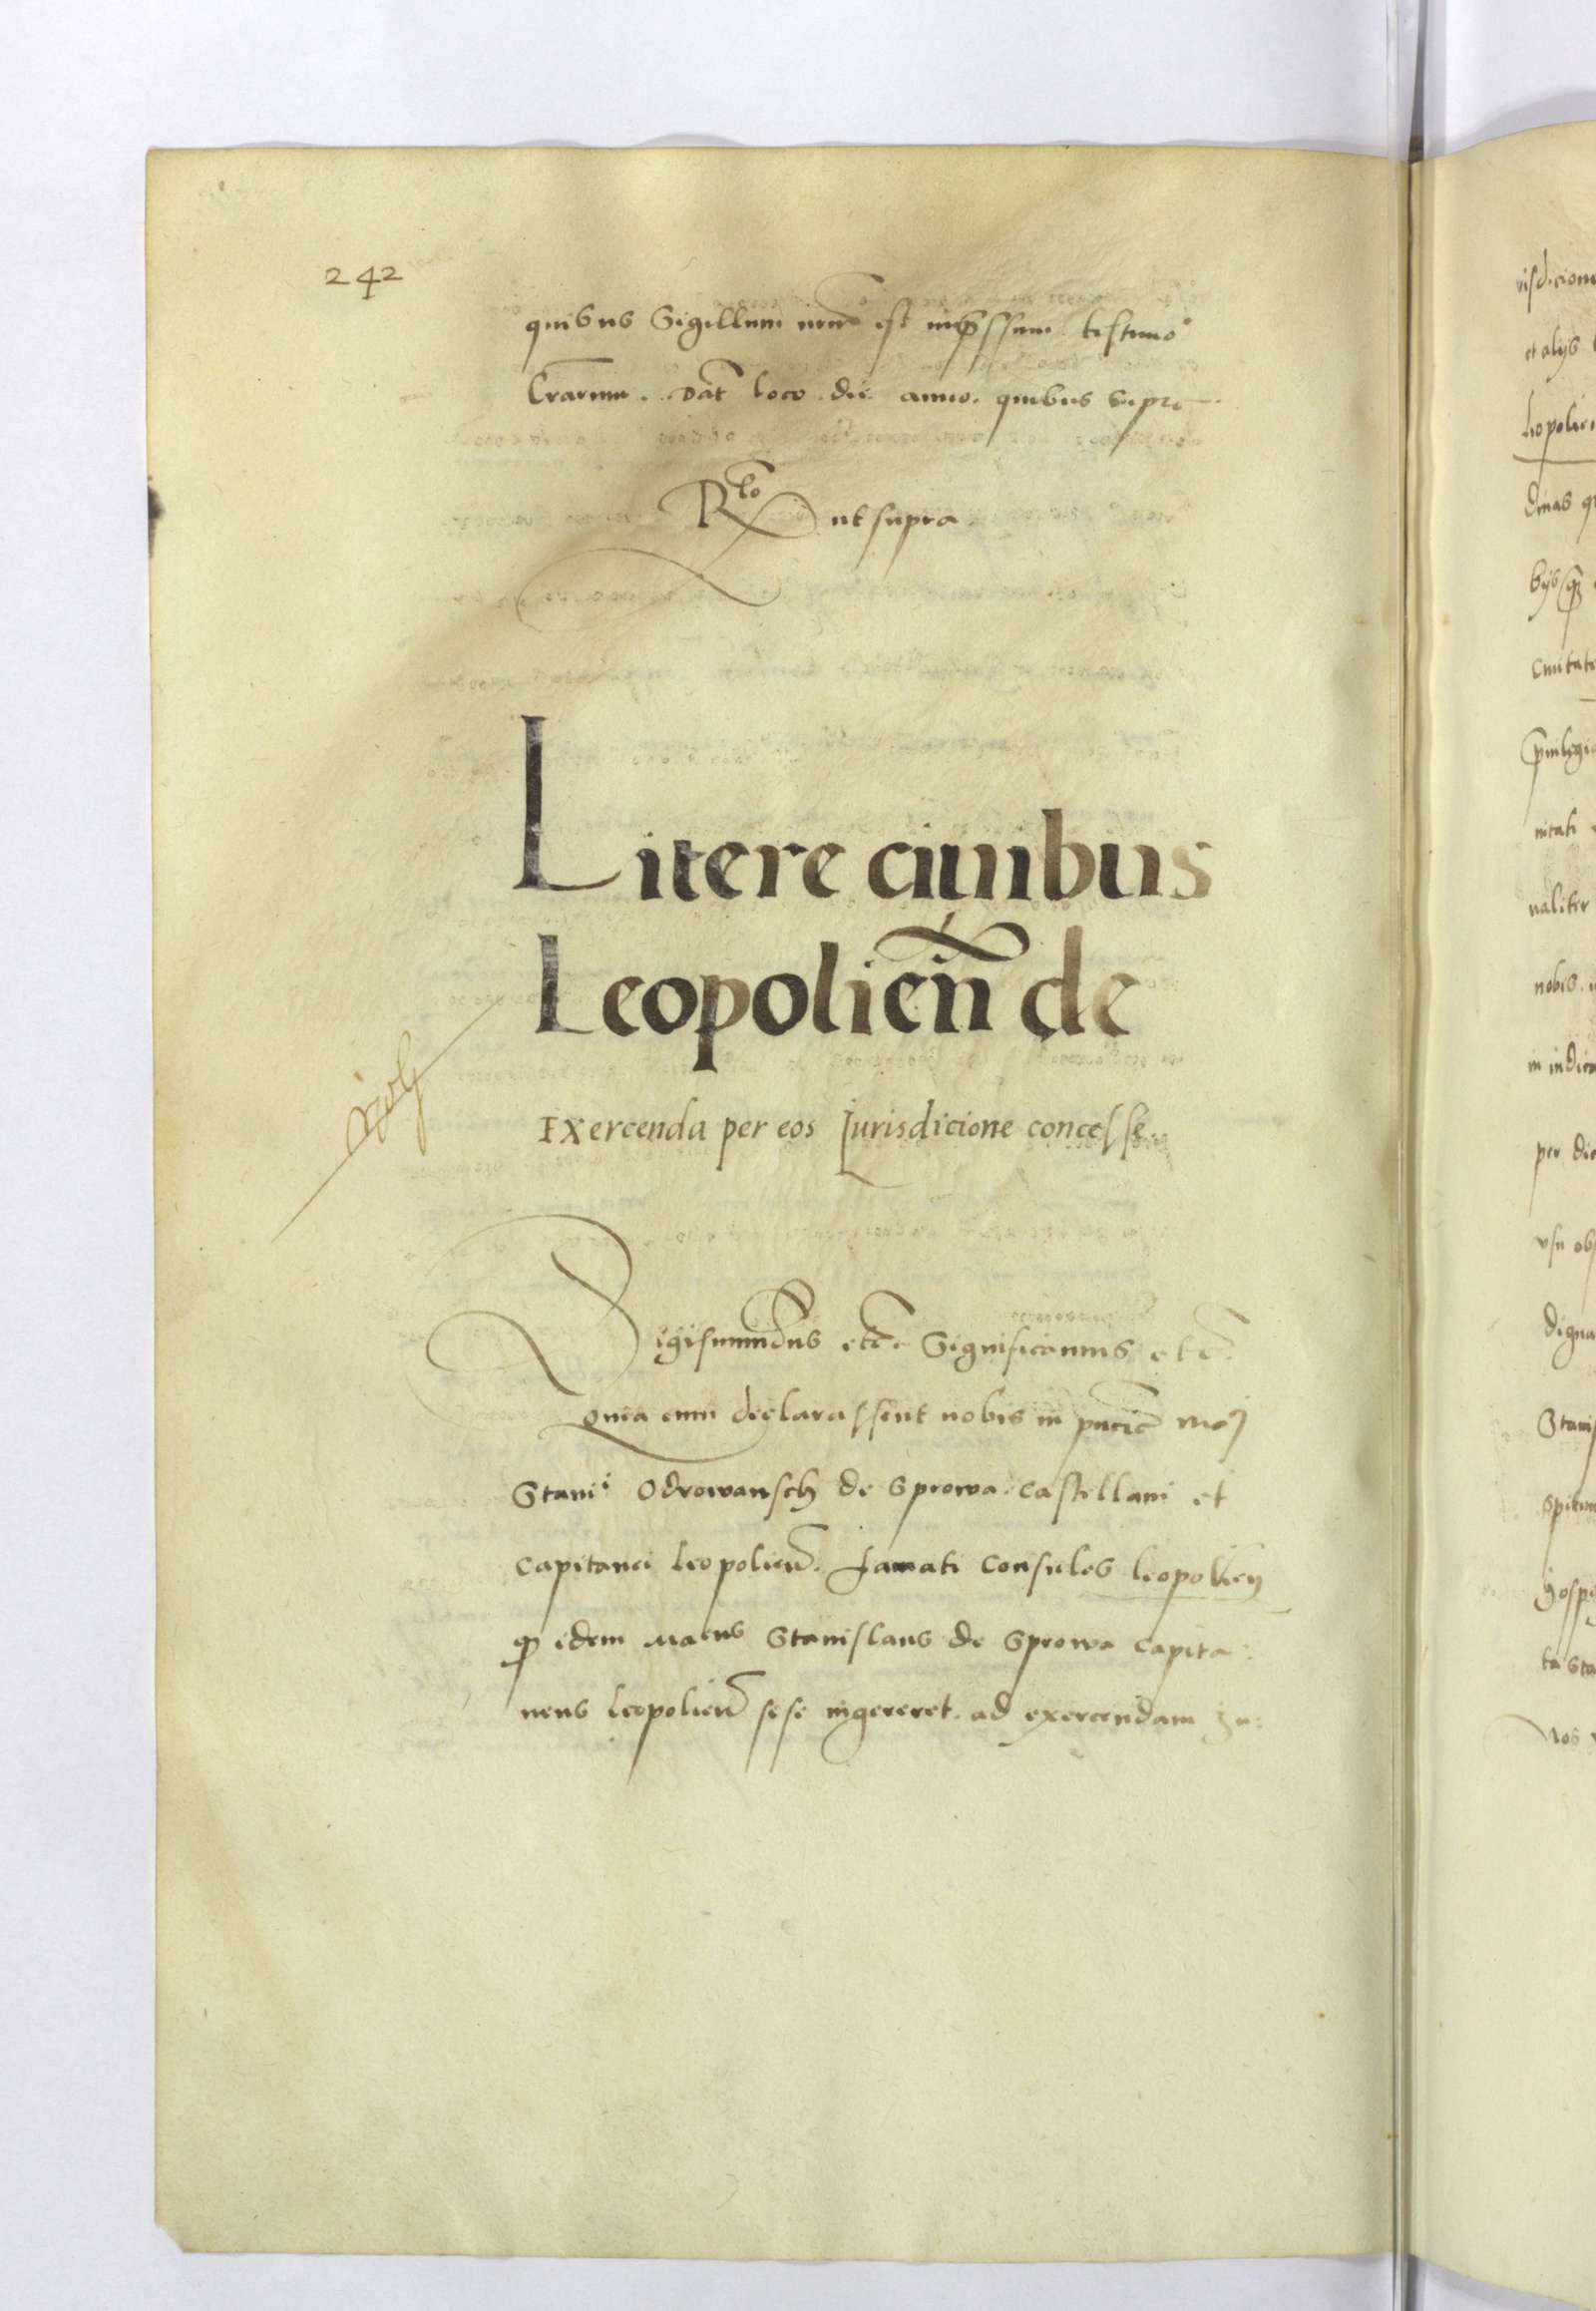 242
quibus Sigillum nrm̃ est imp̃ssum testimoᵒ
lrarum. Dat̃ loco die anno. quibus supra
Rᵗᵒ ut supra
Litere ciuibus
Leopolieñ de
Exercenda per eos Jurisdicione concesse
Sigismundus etc̃. Significamus etc̃.
Quia cum declarassent nobis in pñcia Mcj
Staniⁱ Odrowansch de Sprowa Castellani et
Capitanei leopolieñ. famati Consules leopolieñ
qp idem Macus Stanislaus de Sprowa Capita:
neus leopolieñ sese ingereret ad exercendam Ju:
risdicione
et alijs
Leopolien
dinas
Ciuitate
priuilegi
uitati
ualiter
nobis
in iudici
per di
vsu obs
digna
Stanis
Hospi
ta Sta
Nos